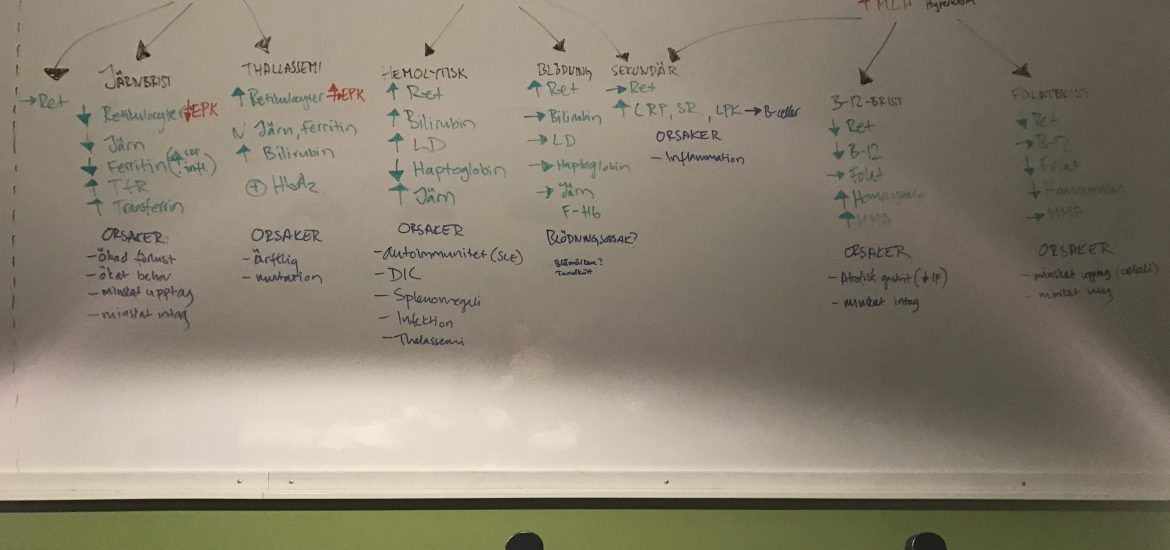 ↑ MCH Hyperkrom
→ Ret
JÄRNBRIST
↓ Retikulocyter ↓EPK
↓ Järn
↓ Ferritin (↑ CRP infl.)
↑ TfR
↑ Transferrin
ORSAKER:
- ökad förlust
- ökat behov
- minskat upptag
- minskat intag
THALLASSEMI
↑ Retikulocyter EPK
N Järn, Ferritin
↑ Bilirubin
⊕ HbA2
ORSAKER
- ärftlig
- mutation
HEMOLYTISK
↑ Ret
↑ Bilirubin
↑ LD
↓ Haptoglobin
↑ Järn
ORSAKER
- autoimmunitet (SLE)
- DIC
- Splenomegali
- Infektion
- Thalassemi
BLÖDNING
↑ Ret
→ Bilirubin
→ LD
→ Haptoglobin
→ Järn
F-Hb
BLÖDNINGSORSAK?
Blåmärken?
Tandkött
SEKUNDÄR
→ Ret
↑ CRP, SR, LPK → B-celler
ORSAKER
- Inflammation
B-12-BRIST
↓ Ret
↓ B-12
→ Folat
↑ Homocystein
↑ MMA
ORSAKER
- Atrofisk gastrit (↓IF)
- minskat intag
FOLATBRIST
↓ Ret
→ B-12
↓ Folat
↓ Homocystein
→ MMA
ORSAKER
- minskat upptag (celiaki)
- minskat intag